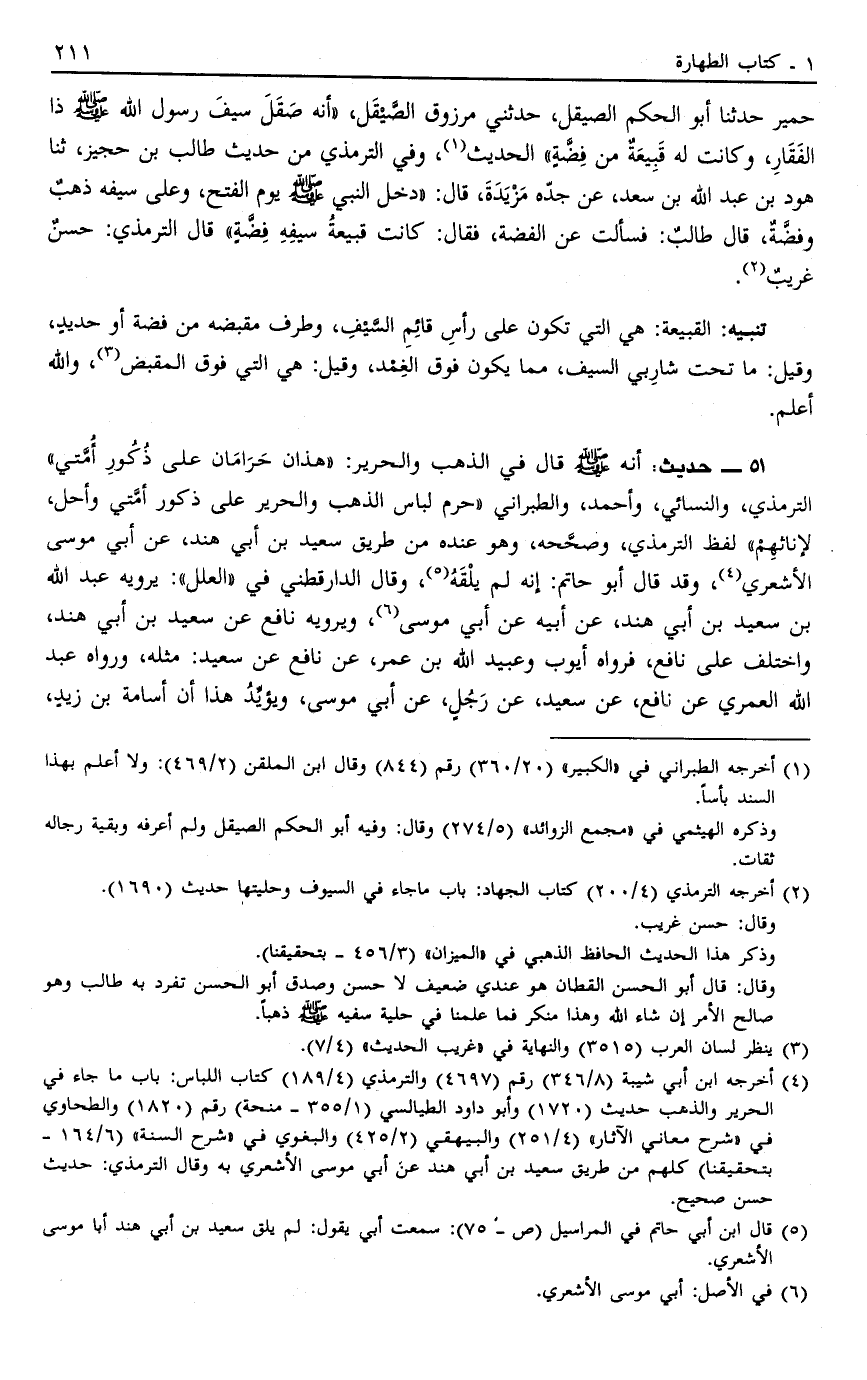 ١ ـ كتاب الطهارة ٢١١
حمير حدثنا أبو الحكم الصيقل، حدثني مرزوق الصَّيْقَل، «أنه صَقَلَ سيفَ رسول الله ﷺ ذا
الفَقَارِ، وكانت له قَبِيعَةٌ من فِضَّةٍ» الحديث(١)، وفي الترمذي من حديث طالب بن حجيز، ثنا
هود بن عبد الله بن سعد، عن جدّه مَزْيَدَةَ، قال: «دخل النبي ﷺ يوم الفتح، وعلى سيفه ذهبٌ
وفضَّةٌ، قال طالبٌ: فسألت عن الفضة، فقال: كانت قبيعةُ سيفِهِ فِضَّةٍ» قال الترمذي: حسنٌ
غريبٌ(٢).
تنبيه: القبيعة: هي التي تكون على رأسِ قائِمِ السَّيْفِ، وطرف مقبضه من فضة أو حديدٍ،
وقيل: ما تحت شارِبي السيف، مما يكون فوق الغِمْد، وقيل: هي التي فوق المقبض(٣)، والله
أعلم.
٥١ ــ حديث: أنه ﷺ قال في الذهب والحرير: «هذان حَرَامَان على ذُكُورِ أُمَّتي»
الترمذي، والنسائي، وأحمد، والطبراني «حرم لباس الذهب والحرير على ذكور أمَّتي وأحل،
لإناثهِمْ» لفظ الترمذي، وصحَّحه، وهو عنده من طريق سعيد بن أبي هند، عن أبي موسى
الأشعري(٤)، وقد قال أبو حاتم: إنه لم يلْقَهُ(٥)، وقال الدارقطني في «العلل»: يرويه عبد الله
بن سعيد بن أبي هند، عن أبيه عن أبي موسى(٦)، ويرويه نافع عن سعيد بن أبي هند،
واختلف على نافع، فرواه أيوب وعبيد الله بن عمر، عن نافع عن سعيد: مثله، ورواه عبد
الله العمري عن نافع، عن سعيد، عن رَجُلٍ، عن أبي موسى، ويؤيِّدُ هذا أن أسامة بن زيدٍ،
(١) أخرجه الطبراني في «الكبير» (٣٦٠/٢٠) رقم (٨٤٤) وقال ابن الملقن (٤٦٩/٢): ولا أعلم بهذا
السند بأساً.
وذكره الهيثمي في «مجمع الزوائد» (٢٧٤/٥) وقال: وفيه أبو الحكم الصيقل ولم أعرفه وبقية رجاله
ثقات.
(٢) أخرجه الترمذي (٢٠٠/٤) كتاب الجهاد: باب ماجاء في السيوف وحليتها حديث (١٦٩٠).
وقال: حسن غريب.
وذكر هذا الحديث الحافظ الذهبي في «الميزان» (٤٥٦/٣ ـ بتحقيقنا).
وقال: قال أبو الحسن القطان هو عندي ضعيف لا حسن وصدق أبو الحسن تفرد به طالب وهو
صالح الأمر إن شاء الله وهذا منكر فما علمنا في حلية سفيه ﷺ ذهباً.
(٣) ينظر لسان العرب (٣٥١٥) والنهاية في «غريب الحديث» (٧/٤).
(٤) أخرجه ابن أبي شيبة (٣٤٦/٨) رقم (٤٦٩٧) والترمذي (١٨٩/٤) كتاب اللباس: باب ما جاء في
الحرير والذهب حديث (١٧٢٠) وأبو داود الطيالسي (٣٥٥/١ ـ منحة) رقم (١٨٢٠) والطحاوي
في «شرح معاني الآثار» (٢٥١/٤) والبيهقي (٤٢٥/٢) والبغوي في «شرح السنة» (١٦٤/٦ ـ
بتحقيقنا) كلهم من طريق سعيد بن أبي هند عن أبي موسى الأشعري به وقال الترمذي: حديث
حسن صحيح.
(٥) قال ابن أبي حاتم في المراسيل (ص ـ ٧٥): سمعت أبي يقول: لم يلق سعيد بن أبي هند أبا موسى
الأشعري.
(٦) في الأصل: أبي موسى الأشعري.